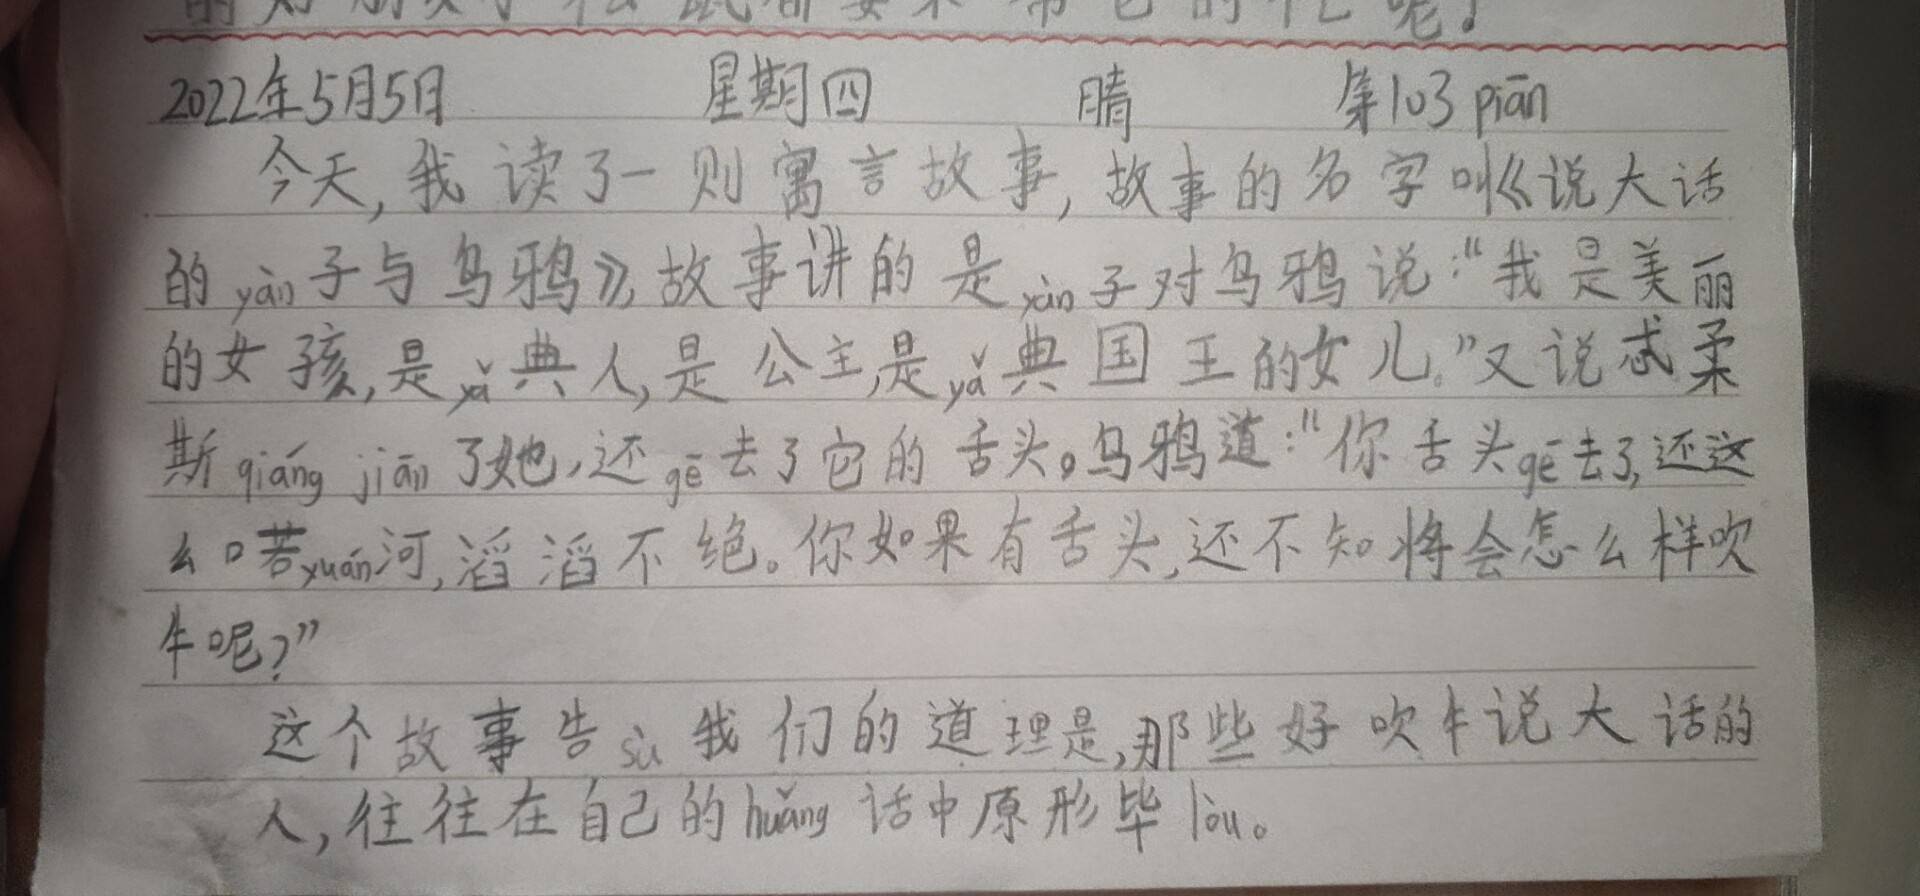 的好朋友小松鼠都要来帮它的忙呢!
2022年5月5日 星期四 晴 第103 piān
今天,我读了一则寓言故事,故事的名字叫《说大话
的yàn子与乌鸦》,故事讲的是yàn子对乌鸦说:“我是美丽
的女孩,是yǎ典人,是公主,是yǎ典国王的女儿。”又说忒柔
斯qiáng jiān了她,还gē去了它的舌头。乌鸦道:“你舌头gē去了,还这
么口若xuán河,滔滔不绝。你如果有舌头,还不知将会怎么样吹
牛呢?”
这个故事告sù我们的道理是,那些好吹牛说大话的
人,往往在自己的huǎng话中原形毕lòu。